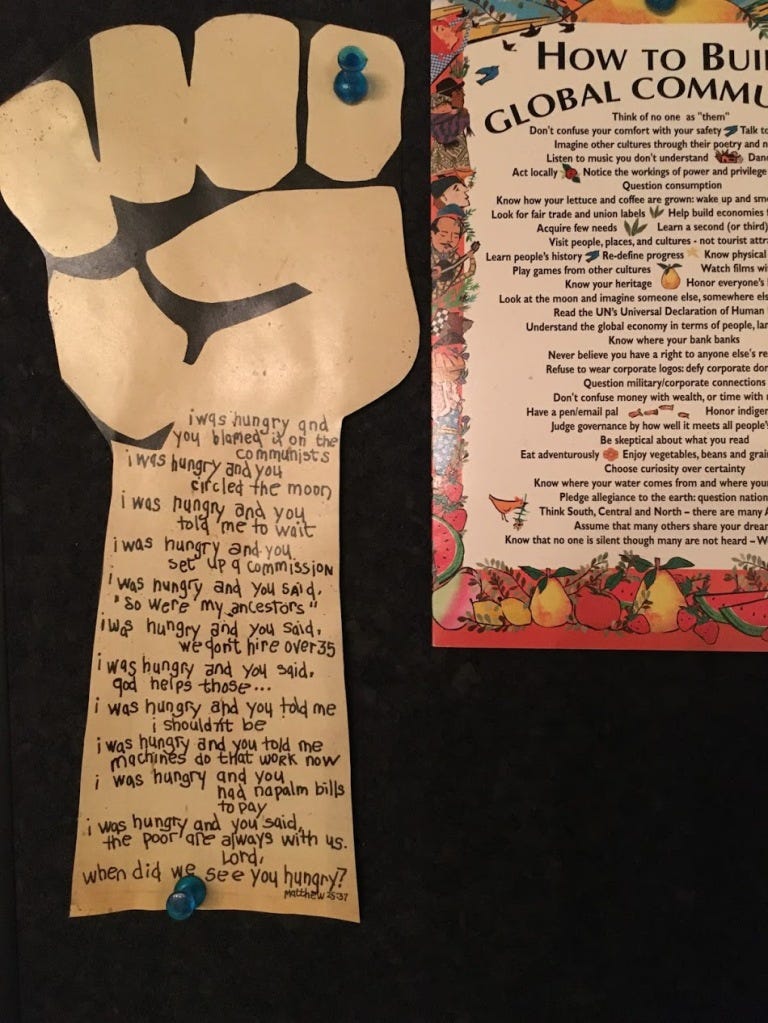 i was hungry and
you blamed it on the
communists
i was hungry and you
circled the moon
i was hungry and you
told me to wait
i was hungry and you
set up a commission
i was hungry and you said,
"so were my ancestors"
i was hungry and you said,
we don't hire over 35
i was hungry and you said,
god helps those...
i was hungry and you told me
i shouldn't be
i was hungry and you told me
machines do that work now
i was hungry and you
had napalm bills
to pay
i was hungry and you said,
the poor are always with us.
Lord,
when did we see you hungry?
Matthew 25:37
HOW TO BUI
GLOBAL COMMU
Think of no one as "them"
Don't confuse your comfort with your safety Talk to
Imagine other cultures through their poetry and n
Listen to music you don't understand Dan
Act locally Notice the workings of power and privilege
Question consumption
Know how your lettuce and coffee are grown: wake up and sm
Look for fair trade and union labels Help build economies f
Acquire few needs Learn a second (or third)
Visit people, places, and cultures - not tourist attra
Learn people's history Re-define progress Know physical
Play games from other cultures Watch films wi
Know your heritage Honor everyone's
Look at the moon and imagine someone else, somewhere els
Read the UN's Universal Declaration of Human
Understand the global economy in terms of people, lan
Know where your bank banks
Never believe you have a right to anyone else's re
Refuse to wear corporate logos: defy corporate dom
Question military/corporate connections
Don't confuse money with wealth, or time with
Have a pen/email pal Honor indigen
Judge governance by how well it meets all people's
Be skeptical about what you read
Eat adventurously Enjoy vegetables, beans and grai
Choose curiosity over certainty
Know where your water comes from and where your
Pledge allegiance to the earth: question nation
Think South, Central and North – there are many A
Assume that many others share your drea
Know that no one is silent though many are not heard – W